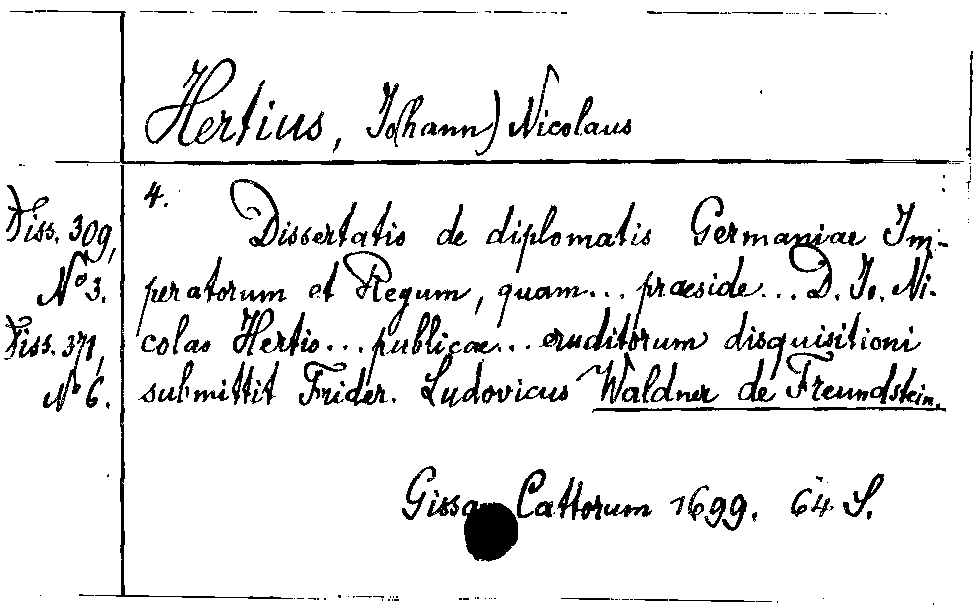 Hertius, Jo(hann) Nicolaus
4.
Diss. 309,
N° 3.
Diss. 371,
N° 6.
Dissertatio de diplomatis Germaniae Im-
peratorum et Regum, quam... praeside... D. Jo. Ni-
colao Hertio... publicae... eruditorum disquisitioni
submittit Frider. Ludovicus Waldner de Freundstein.
Gissae Cattorum 1699. 64 S.